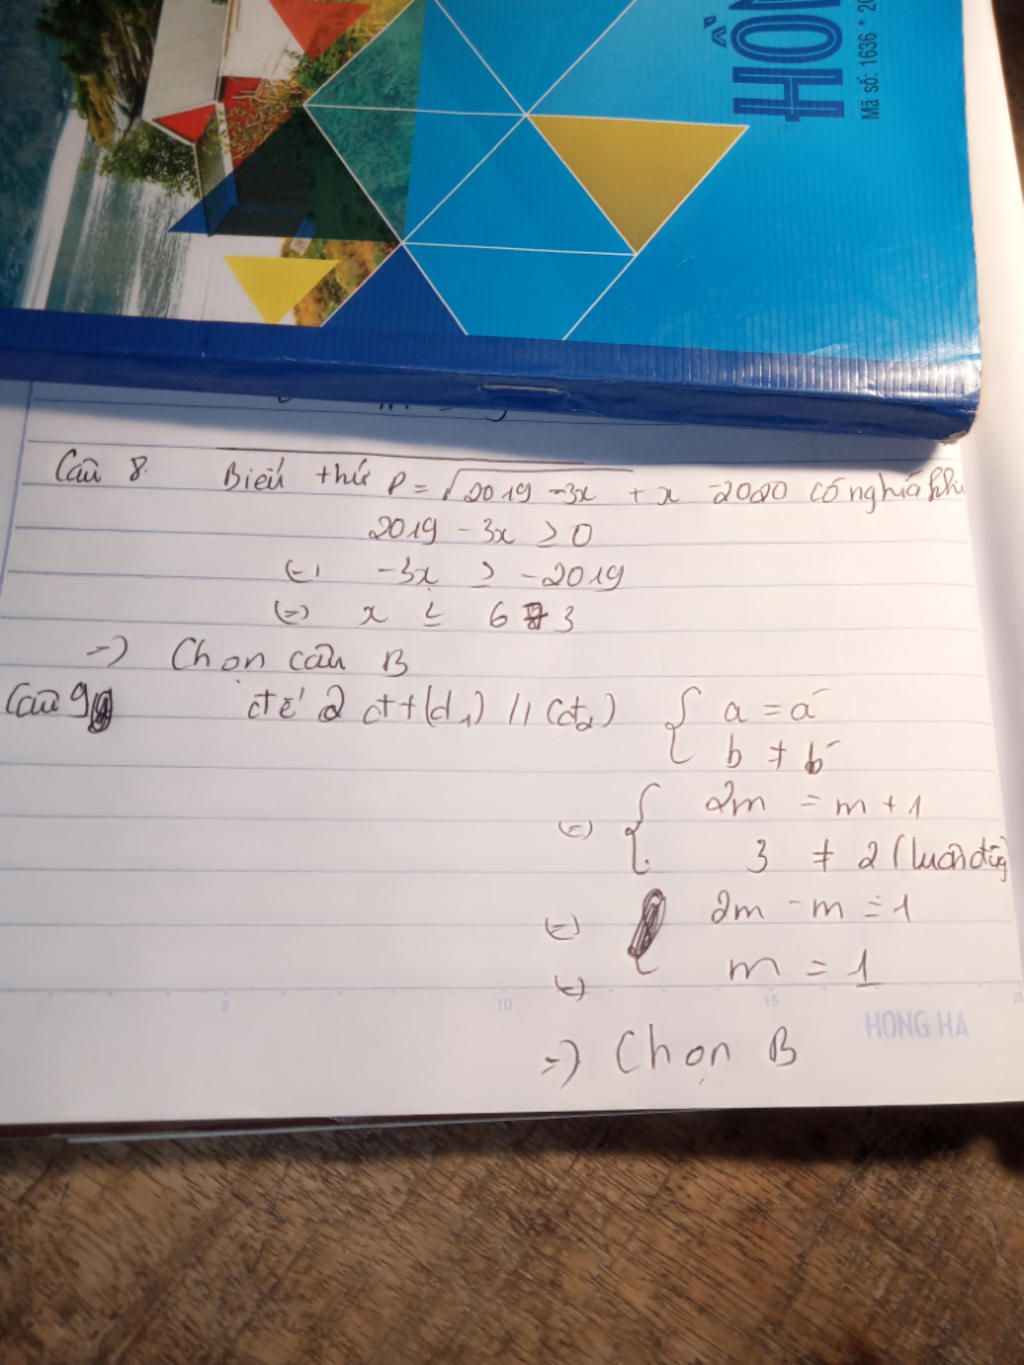 HỒN
Mã số: 1636 * 20
Câu 8. Biểu thức P = √2019 - 3x + x - 2020 có nghĩa khi
2019 - 3x ≥ 0
(=) -3x ≥ -2019
(=) x ≤ 673
=) Chọn câu B
Câu 9 để 2 đt (d1) // (d2) { a = a'
b ≠ b'
(=) { 2m = m + 1
3 ≠ 2 (luôn đúng
(=) 2m - m = 1
(=) m = 1
=) Chọn B
5 10 15 20
HONG HA